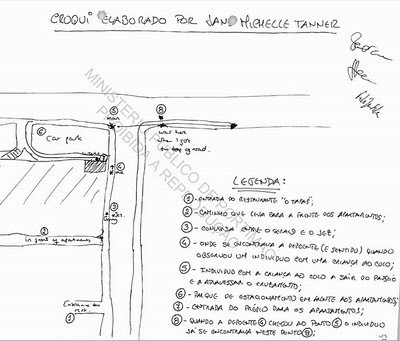 CROQUI ELABORADO POR JANE MICHELLE TANNER
MINISTÉRIO PÚBLICO DE PORTUGAL
PROIBIDA A REPRODUÇÃO
⑤
man
⑧
was here
when I got
to top of road.
⑥
Car park
⑦
④
③
②
in front of apartments
Entrance to
rest.
①
LEGENDA:
① - ENTRADA DO RESTAURANTE "O TAPAS";
② - CAMINHO QUE LEVA PARA A FRENTE DOS APARTAMENTOS;
③ - CONVERSA ENTRE O GERALD E O JEZ;
④ - ONDE SE ENCONTRAVA A DEPOENTE (E SENTIDO) QUANDO
OBSERVOU UM INDIVIDUO COM UMA CRIANÇA AO COLO;
⑤ - INDIVIDUO COM A CRIANÇA AO COLO A SAIR DO PASSEIO
E A ATRAVESSAR O CRUZAMENTO;
⑥ - PARQUE DE ESTACIONAMENTO EM FRENTE AOS APARTAMENTOS;
⑦ - ENTRADA DO PRÉDIO PARA OS APARTAMENTOS;
⑧ - QUANDO A DEPOENTE ④ CHEGOU AO PONTO ⑤ O INDIVIDUO
JÁ SE ENCONTRAVA NESTE PONTO ⑧;